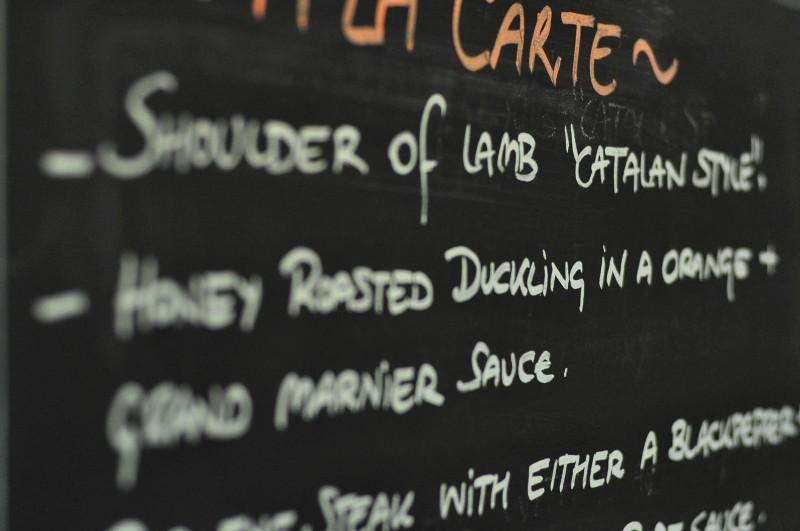 LA CARTE ~
- SHOULDER of LAMB "CATALAN STYLE".
- HONEY ROASTED DUCKLING IN A ORANGE +
GRAND MARNIER SAUCE.
STEAK WITH EITHER A BLACKPEPPER
SAUCE.